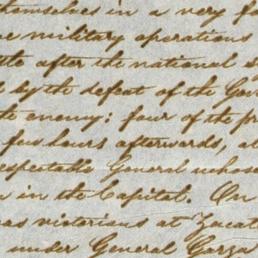 themselves in a very f
military operations
after the national
by the defeat of the Gov
the enemy; four of the pr
few hours afterwards, a
respectable General whose
in the Capital. On
was victorious at Zacat
under General Garza